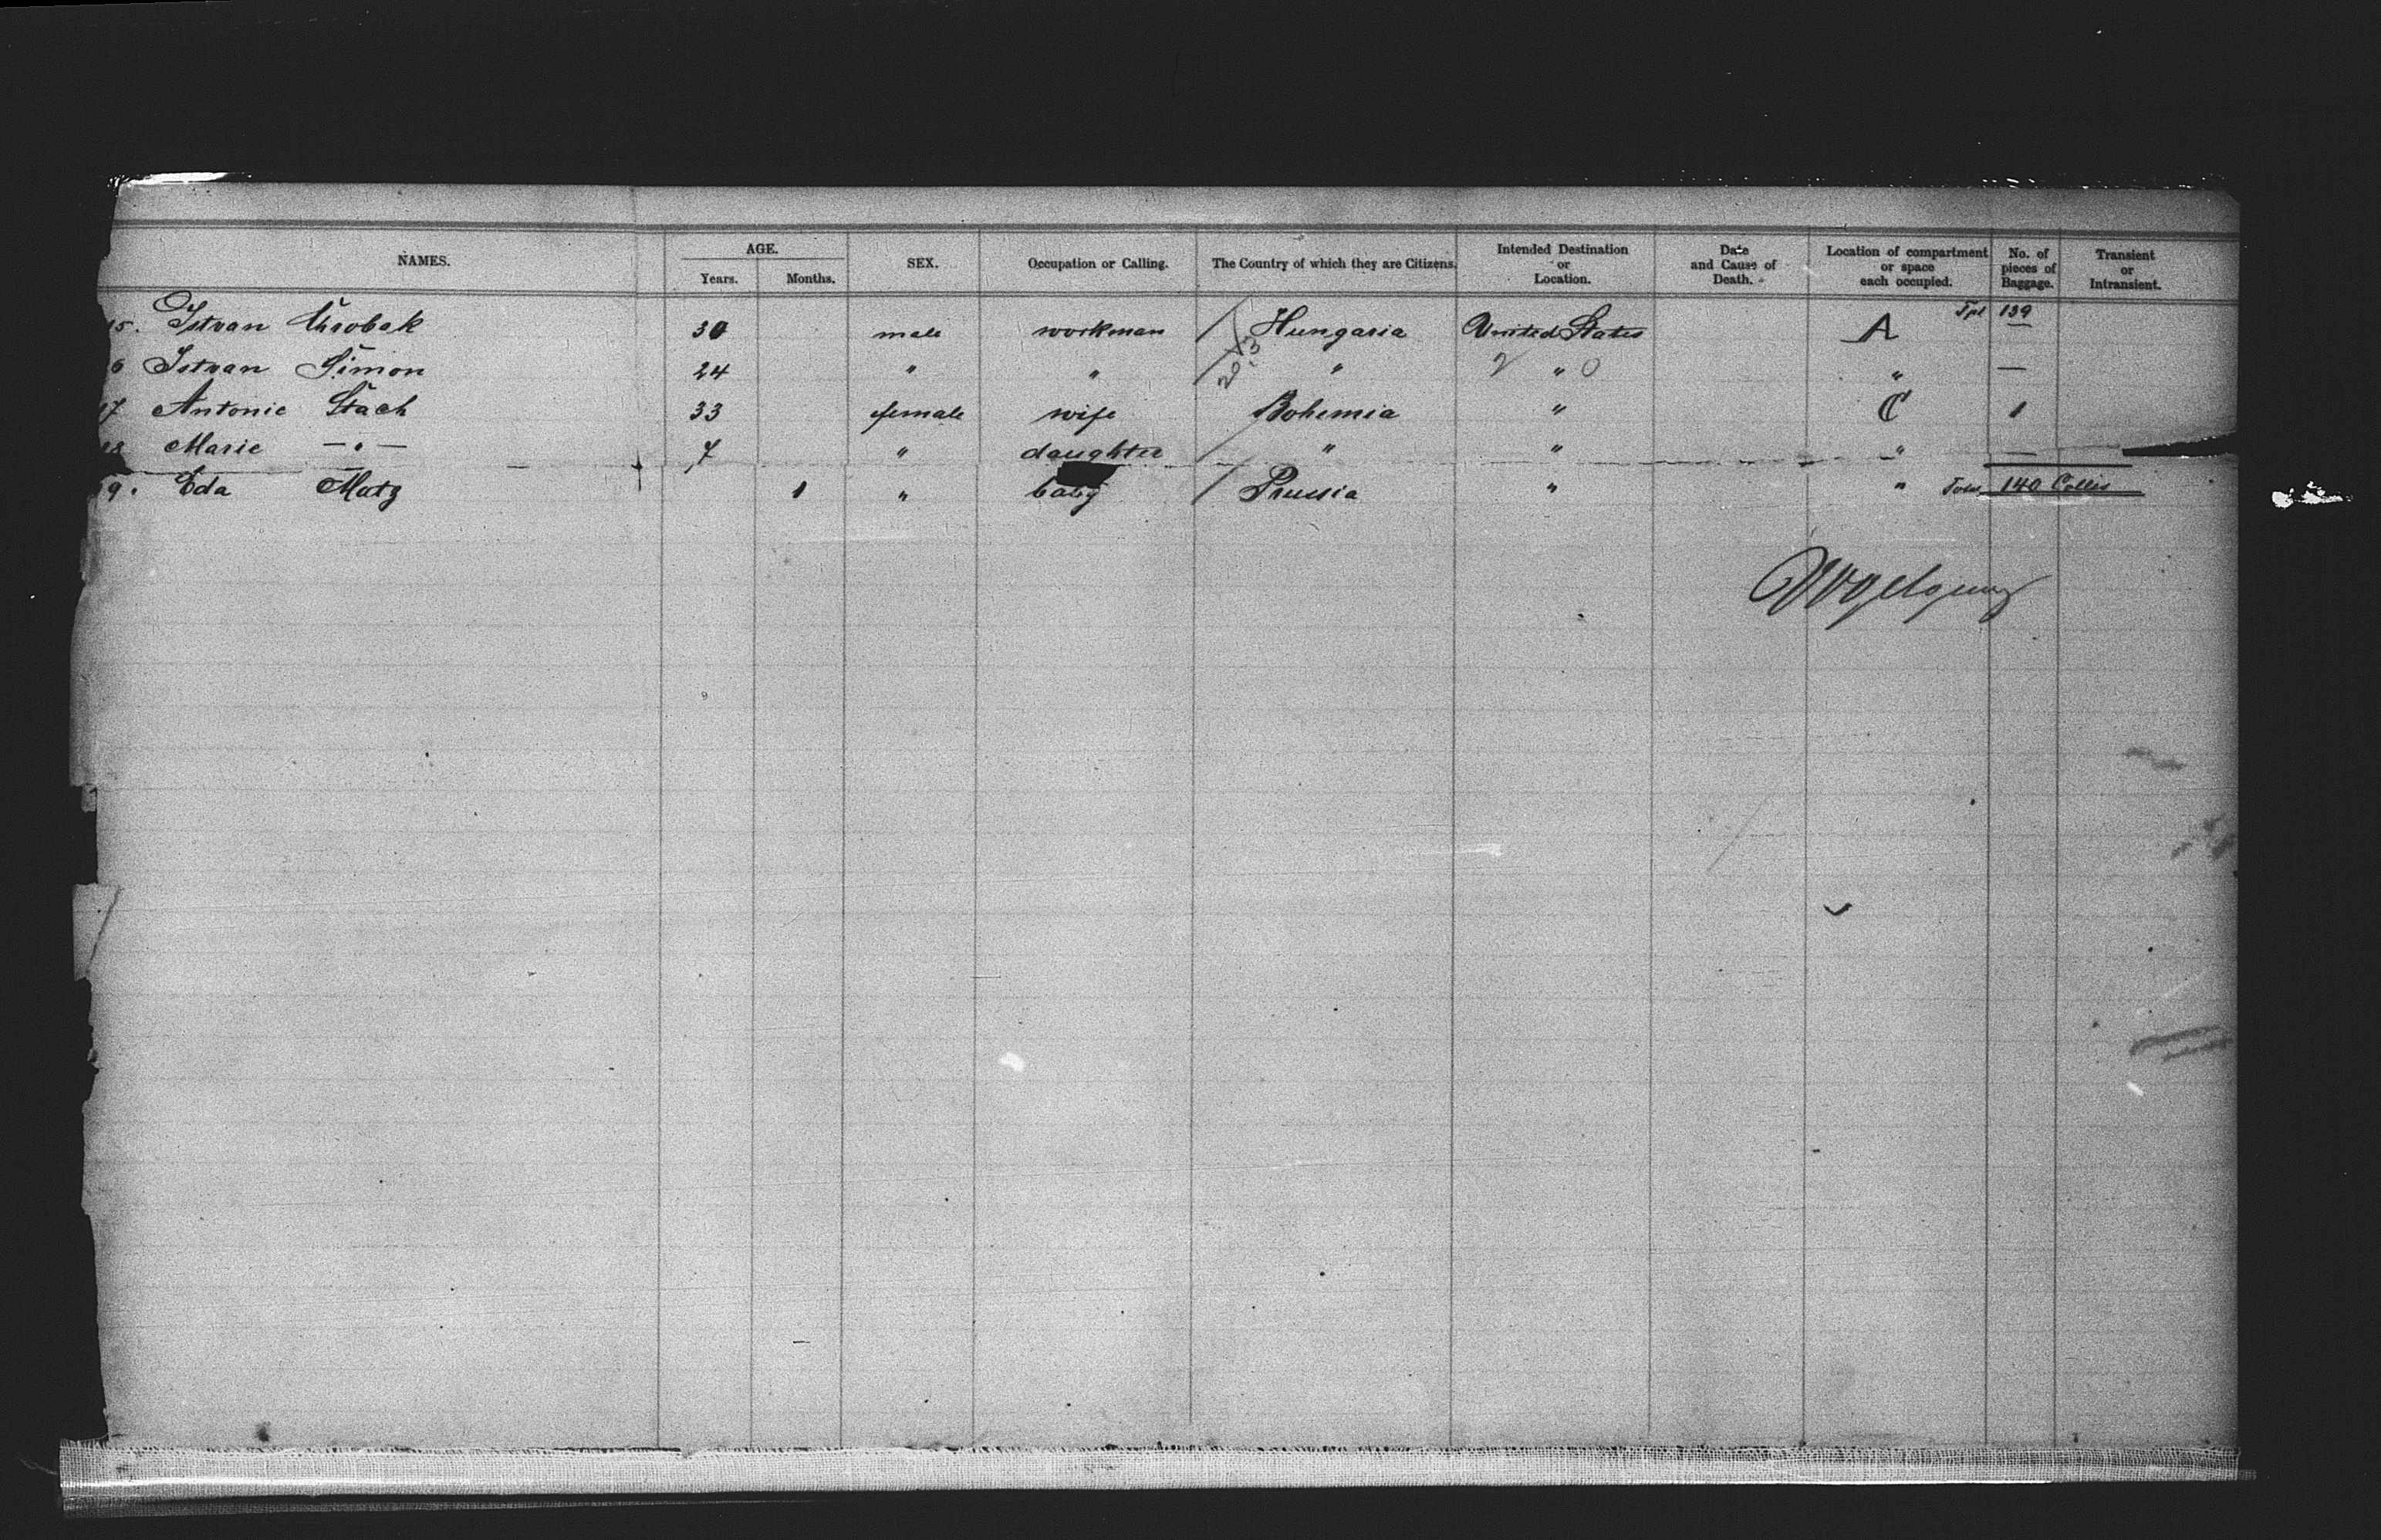 NAMES. AGE. Years. Months. SEX. Occupation or Calling. The Country of which they are Citizens. Intended Destination or Location. Date and Cause of Death. Location of compartment or space each occupied. No. of pieces of Baggage. Transient or Intransient.
139
15. Istvan Chrobak 30 male workman Hungaria United States A —
6 Istvan Simon 24 " " " " " —
17 Antonie Stach 33 female wife Bohemia " C 1
18 Marie — " — 7 " daughter " " " —
19. Eda Matz 1 " baby Prussia " " 140 Collis